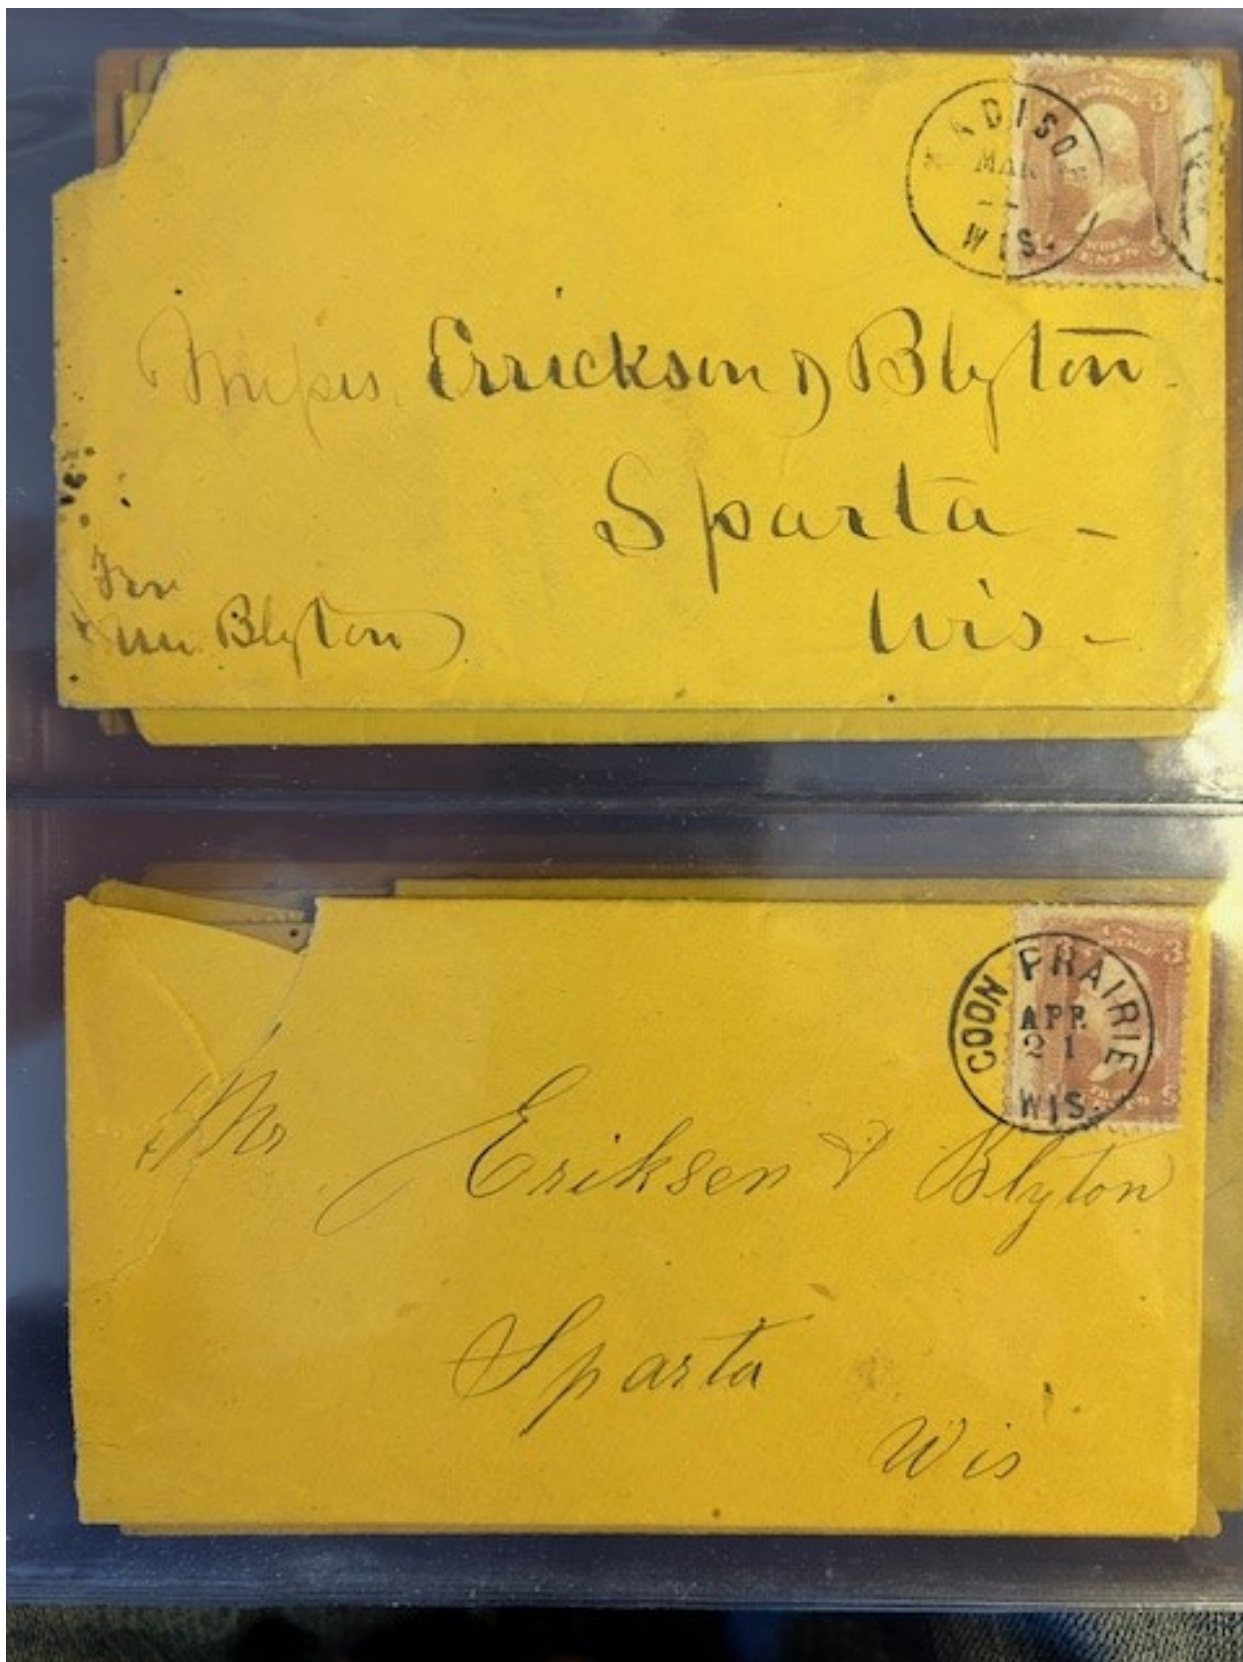 MADISON
MAR
WIS.
U.S. POSTAGE
3
THREE
CENTS
Messrs. Errickson & Blyton
Sparta -
Wis -
For
Mr. Blyton
COON PRAIRIE
APR
21
WIS.
3 3
Mr Eriksen & Blyton
Sparta
Wis